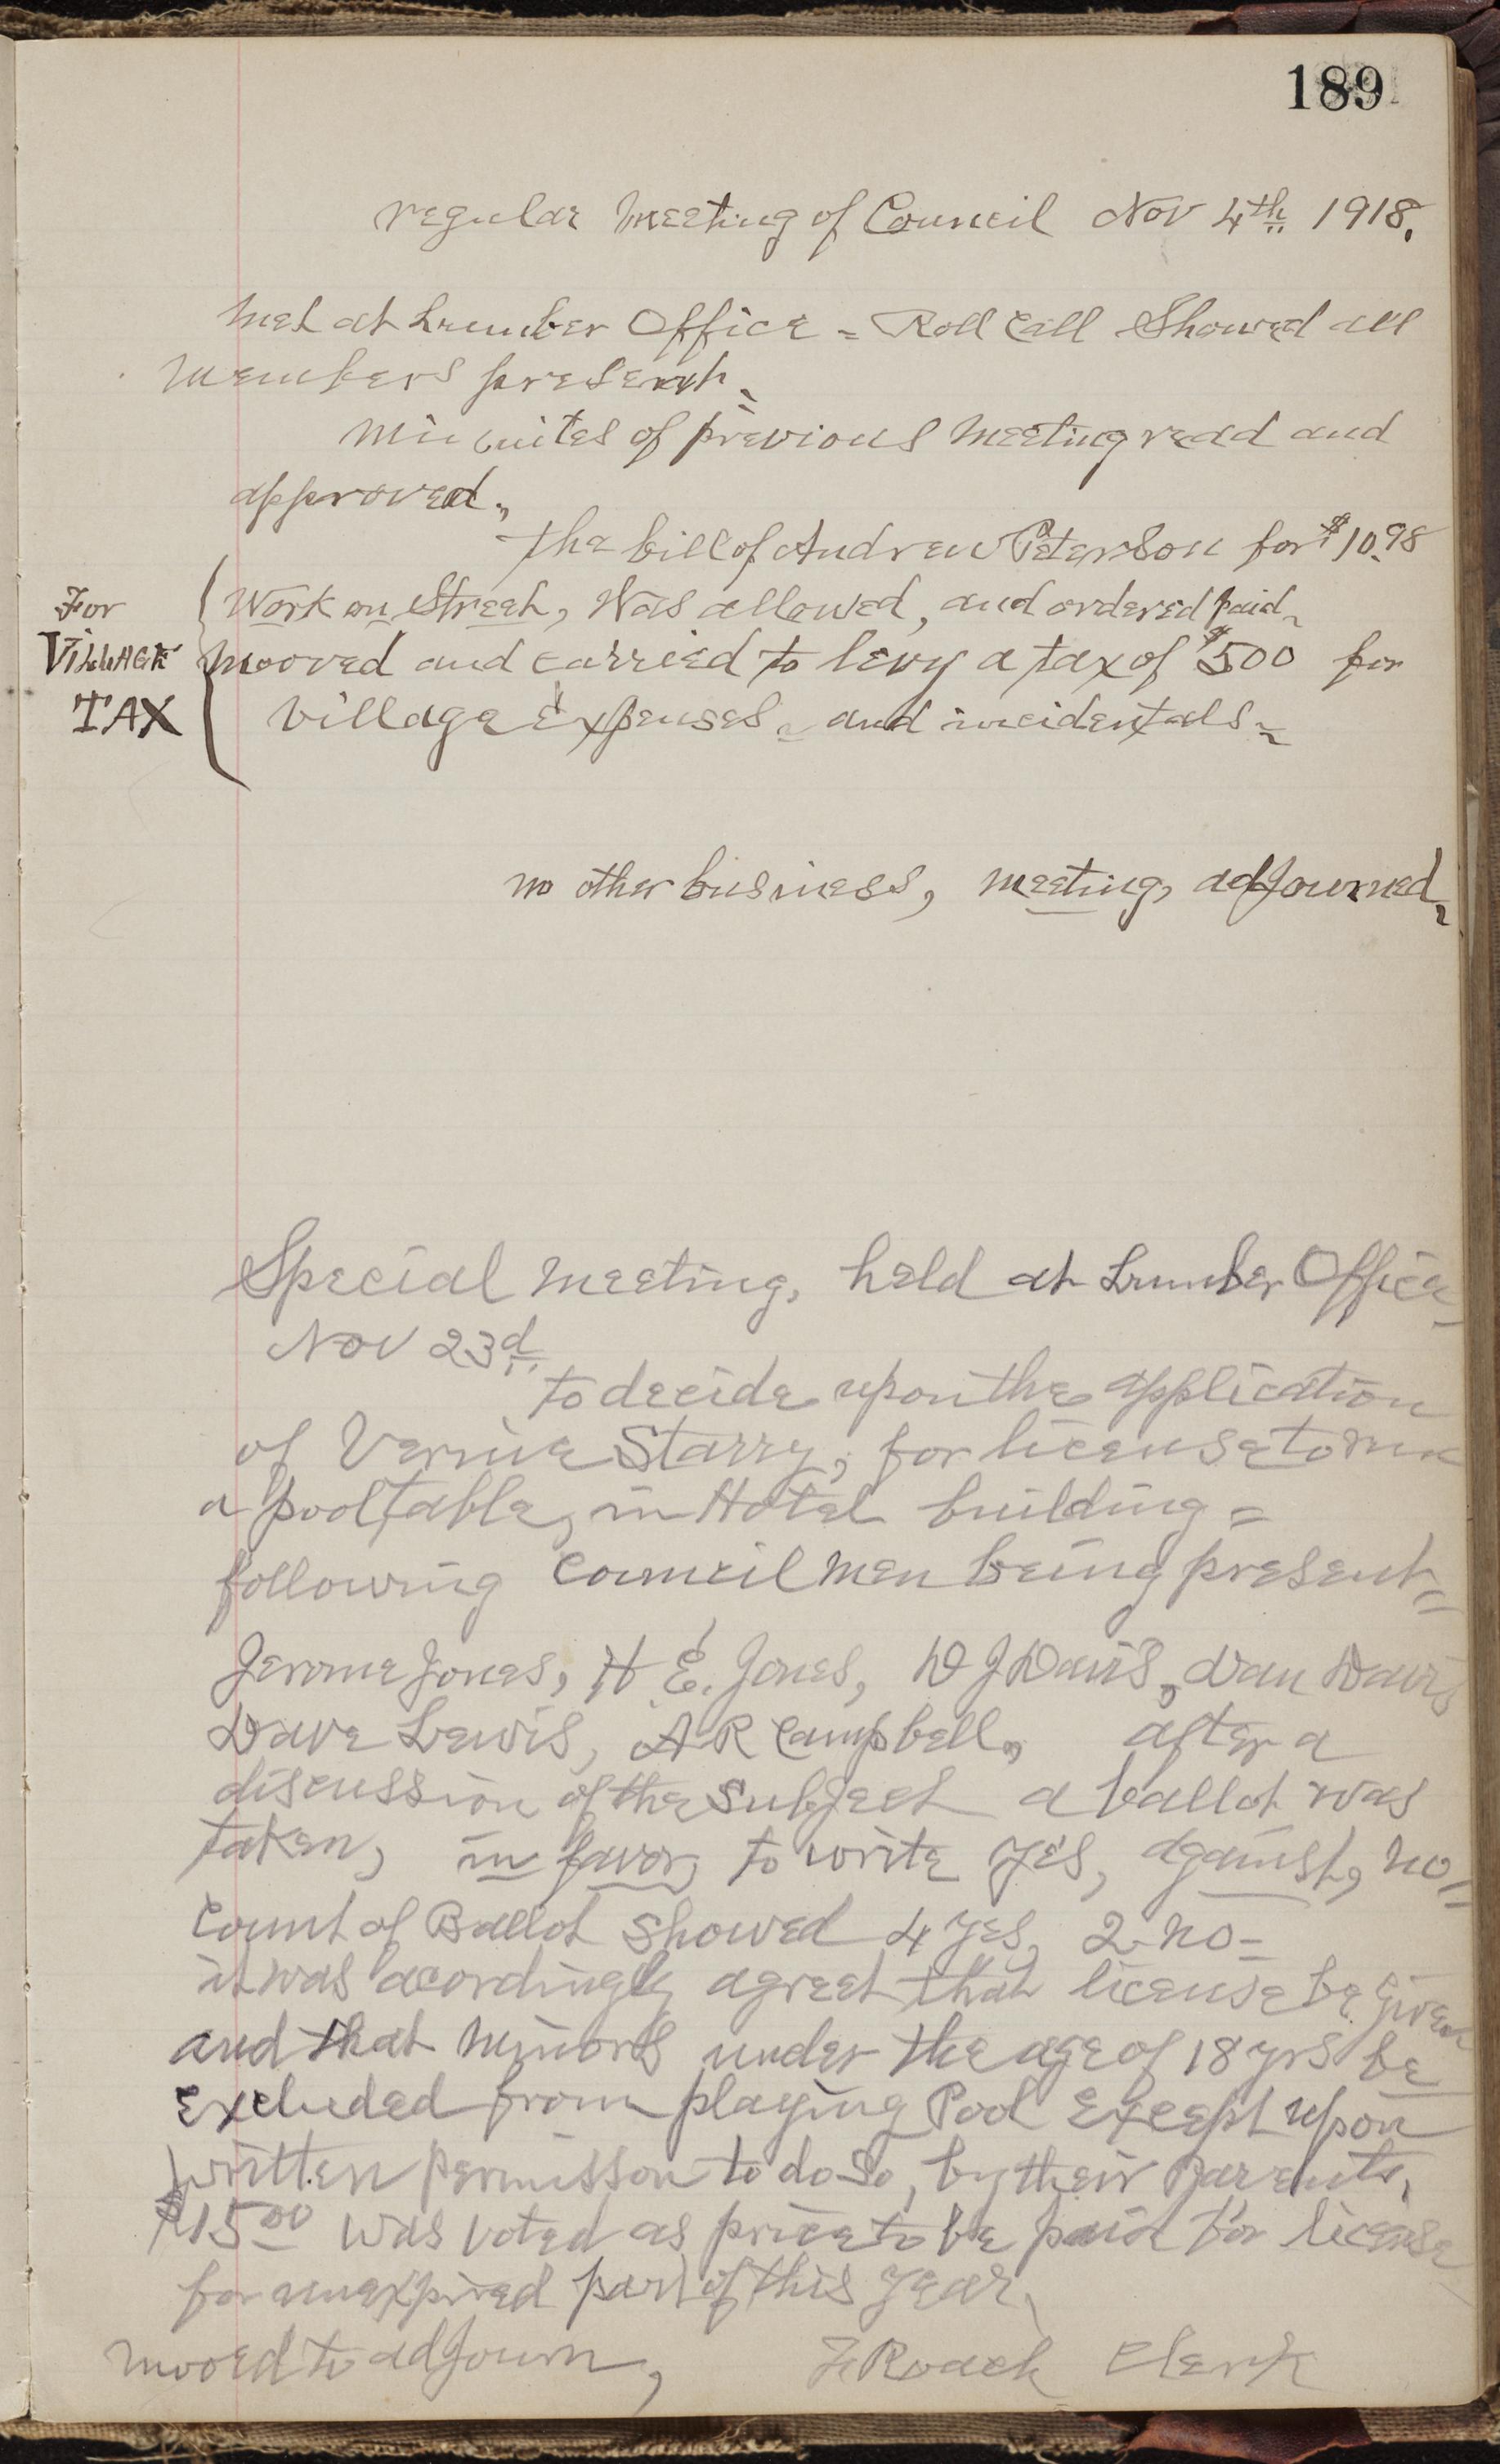 189
regular Meeting of Council Nov 4th 1918.
Met at Lumber Office = Roll Call Showed all
Members present =
Minuites of previous Meeting read and
approved.,
the bill of Andrew Peterson for $10.98
For Work on Street, Was allowed, and ordered paid ~
VillAGE Mooved and carried to levy a tax of $500 for
TAX Village Expenses ~ and incidentals ~
no other business, meeting, adjourned,
Special Meeting, held at Lumber Office
Nov 23d
to decide upon the application
of Vernie Starry, for license to run
a pool table, in Hotel building =
following Council men being present =
Jerome Jones, H E. Jones, D J Davis, Dan Davis
Dave Lewis, A R Campbell, after a
discussion of the Subject a ballot was
taken, in favor, to write yes, against, no =
Count of Ballot Showed 4 yes, 2 no =
it was acordingly agreet that license be given
and that Minors under the age of 18 yrs be
Excluded from playing Pool Except upon
written permisson to do so, by their Parents,
$15 00 was voted as price to be paid for license
for unexpired part of this year,
mooed to adjourn, F Roach Clerk